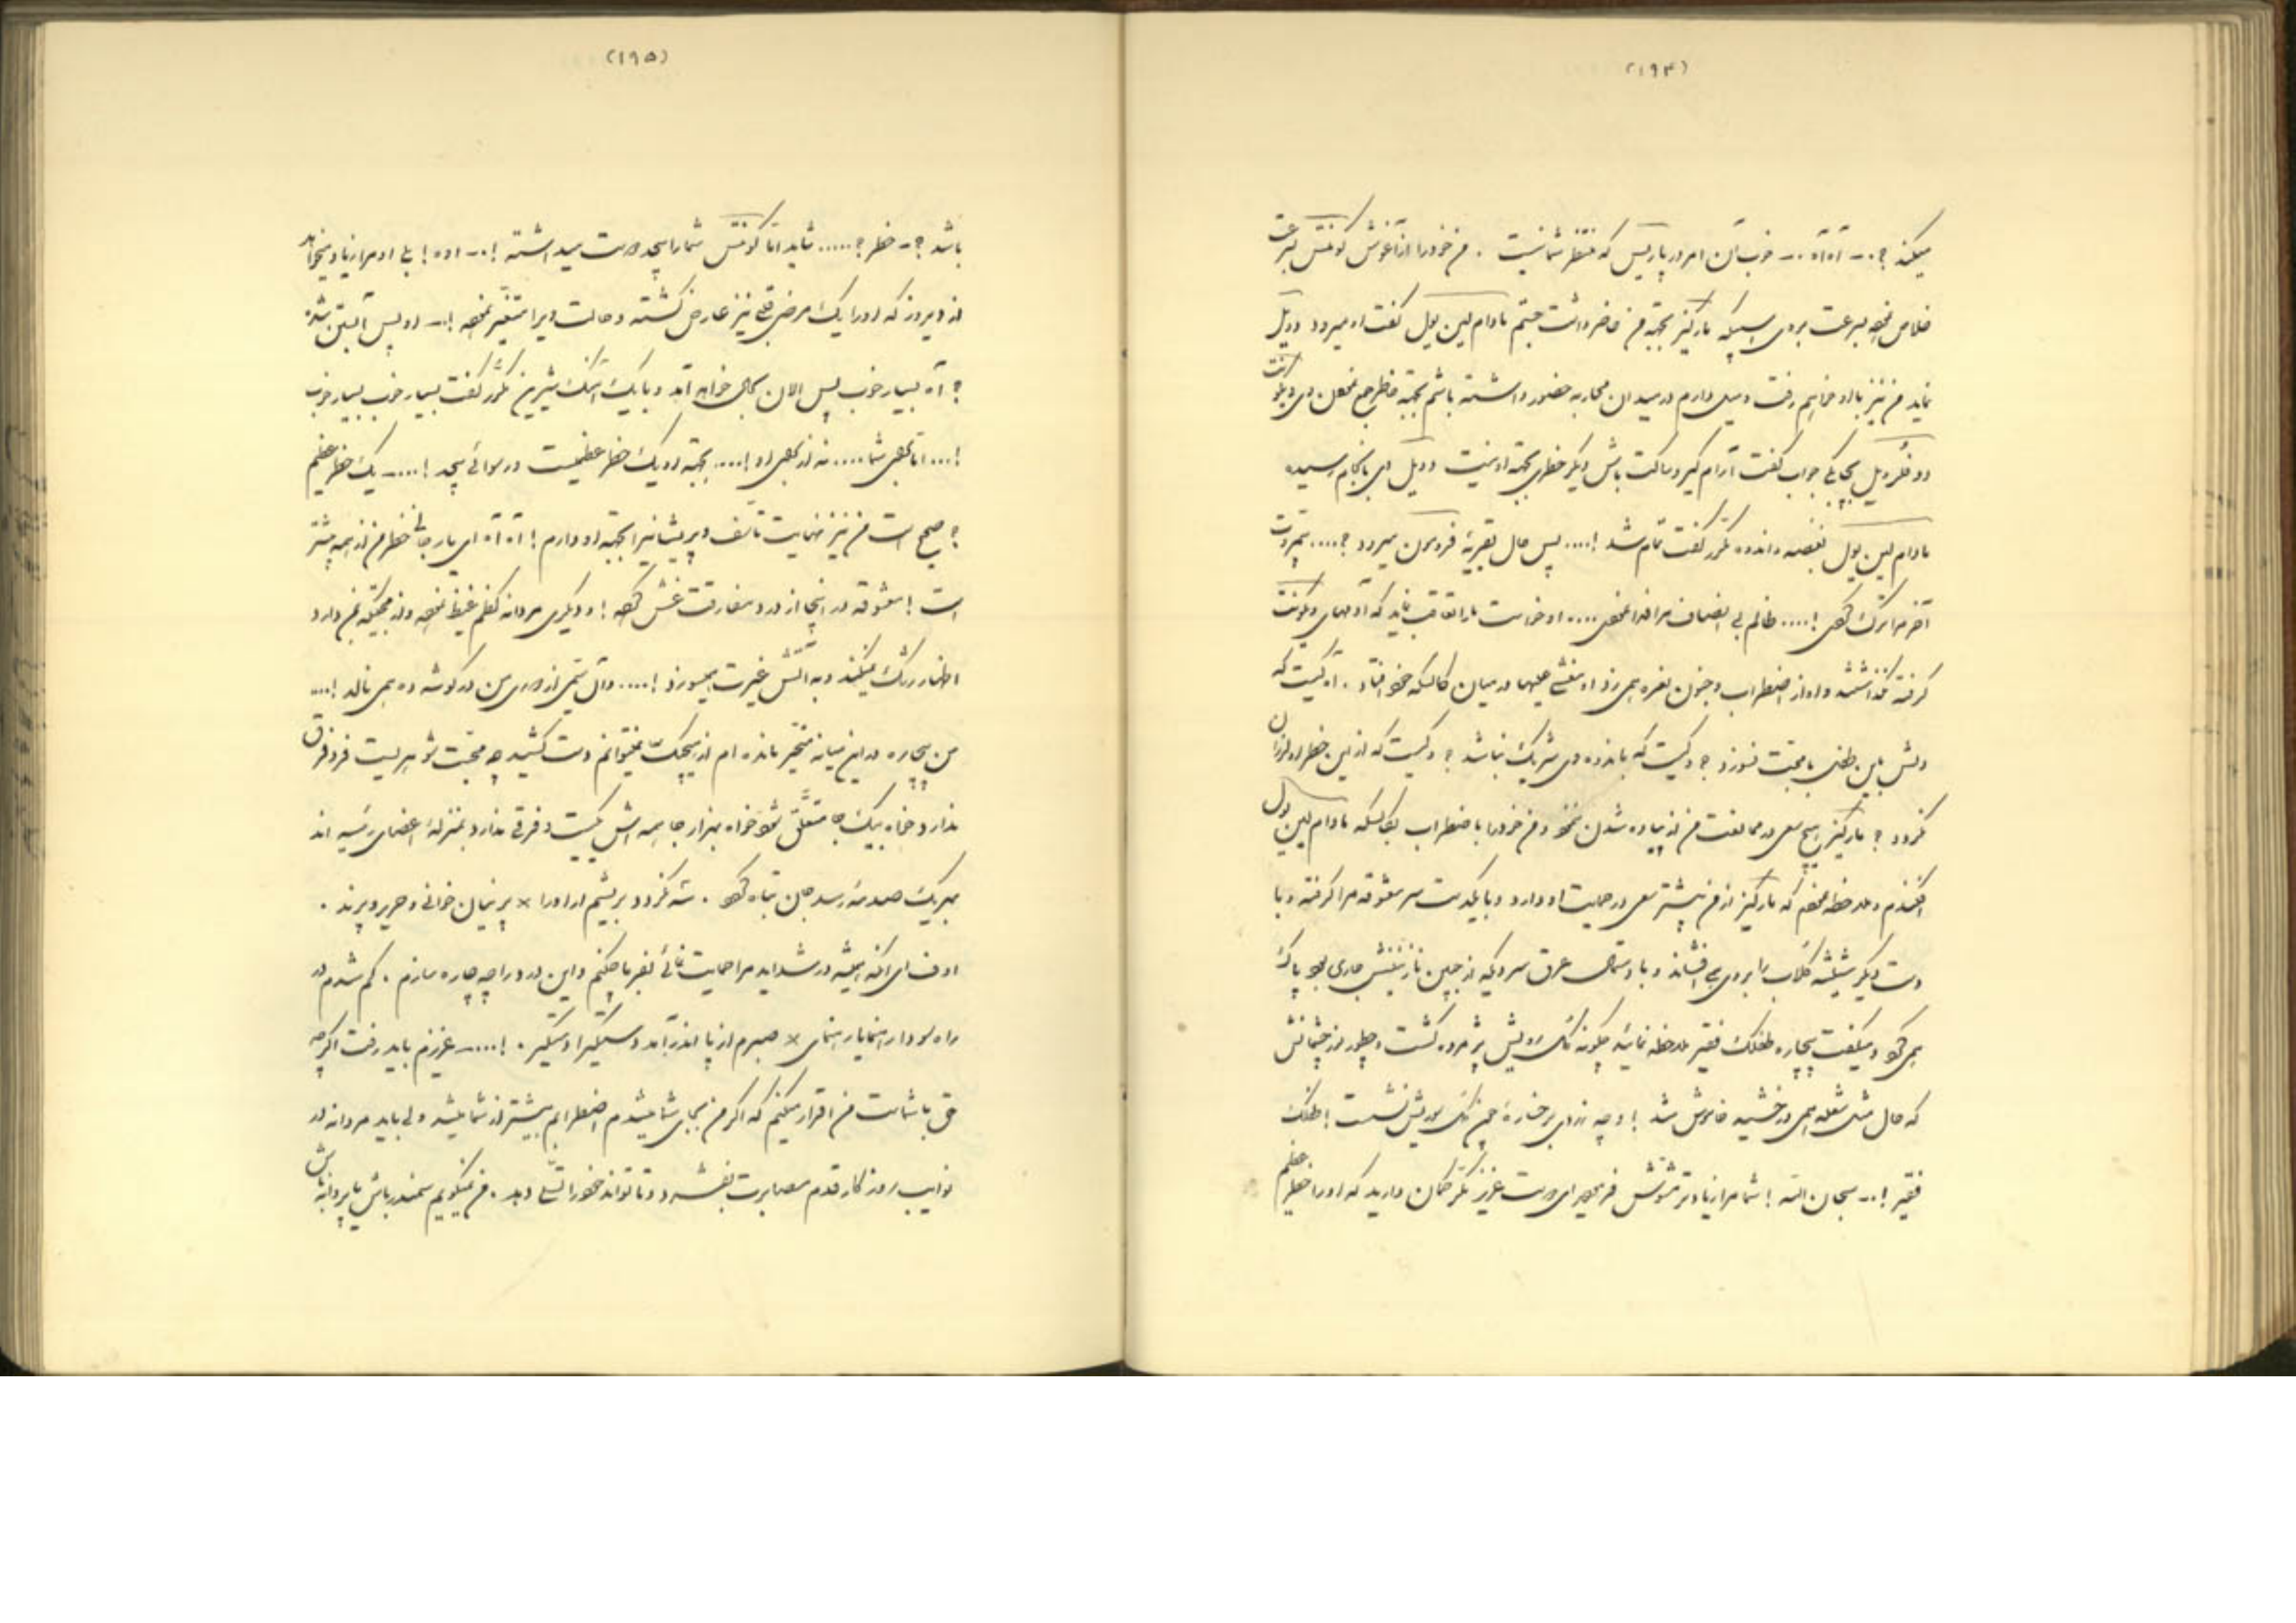 (۱۹۴)
میکند ؟.-- آه آه .-- خوب آن امر در پاریس که منتظر شما نیست . من خود را از آغوش کونتس بسرعت
خلاص نموده بسرعت بروی اسبیکه مارکیز بجهته من حاضر داشت جستم مادام لین یول گفت او میرود دویل
نماید من نیز با او خواهم رفت و میل دارم در میدان محاربه حضور داشته باشم بجهته خاطر جمع نمودن وی ویکونت
دو فلرویل بچابکی جواب گفت آرام گیر و ساکت باش دیگر خطری بجهته او نیست دویل وی بانجام رسیده
مادام لین یول بغصه و اندوه مکرر گفت تمام شد !.... پس حال بقریهٔ فرومون میرود ؟....
آخر مرا ترک کرد !.... ظالم بی انصاف مرا فدا نمود .... او خواست ما را تعاقب نماید که آدمهای ویکونت
گرفته نگذاشتند و او از اضطراب و جنون نعره همی زد او مغشی علیها در میان کالسکه خود افتاد . آه کیست که
دلش باین طفل با محبت نسوزد ؟ و کیست که باندوه وی شریک نباشد ؟ و کیست که ازین خطر او لرزان
نگردد ؟ مارکیز هیچ سعی در ممانعت من از پیاده شدن ننمود و من خود را باضطراب بکالسکه مادام لین یول
افکندم و ملاحظه نمودم که مارکیز از من بیشتر سعی در حمایت او دارد و با یکدست سر معشوقه مرا گرفته و با
دست دیگر شیشه گلاب را بروی می افشاند و با دستمالی عرق سردیکه از جبین نازنینش جاری بود پاک
همی کرد و میگفت بیچاره طفلک فقیر ملاحظه نمائید چگونه رنگ رویش پژمرده گشت و چطور نور چشمانش
که حال مثل شعله همی درخشید خاموش شد ! و چه زردی بر رخسارهٔ چمن رنگ رویش نشست ! طفلک
فقیر !.-- سبحان الله ! شما مرا زیادتر مشوش فرمودید ای دوست عزیز مگر گمان دارید که او را خطر عظیم
(۱۹۵)
باشد ؟.- خطر ؟..... شاید اما کونتس شما را بیحد دوست میداشته !.-- اوه ! بلی او مرا زیاد میخواهد
از دیروز که او را یک مرض قی نیز عارض گشته و حالت ویرا متغیر نموده !.-- او پس آبستن شده
؟ آه بسیار خوب پس الان بحال خواهد آمد و با یک آهنگ شیرین مکرر گفت بسیار خوب بسیار خوب
!... اما بجهة شما .... نه از بجهة او !.... بجهته او یک خطر عظیمست و رسوائی بیحد !....-- یک خطر عظیم
؟ صحیح است من نیز نهایت تأسف و پریشانی را بجهته او دارم ! آه آه ای یار جانی خطر من از همه بیشتر
است ! معشوقه در اینجا از درد مفارقت غش کرده ! و دیگری مردانه کظم غیظ نموده و از محبتیکه بمن دارد
اظهار رشک میکند و به آتش غیرت همیسوزد !.... و آن یتیمی از دوری من در گوشه ده همی نالد !....
من بیچاره در این میانه متحیر مانده ام از هیچیک نمیتوانم دست کشید چه محبت شوهریست فرد فرق
ندارد خواه بیک جا متعلق شود خواه بهزار جا همه اش یکیست و فرقی ندارد بمنزلهٔ اعضای رئیسه اند
بهر یک صدمه رسد جان تباه گردد . سه نگردد بریشم ار او را × پرنیان خوانی و حریر و پرند .
اوف ای آنکه همیشه در شداید مرا حمایت نمائی بفرما چکنم و این درد را چه چاره سازم . گم شدم در
راه سودا رهنمایا رهنمای × صبرم از پا اندر آمد دستگیرا دستگیر . !....-- عزیزم باید رفت اگرچه
حق با شماست من اقرار میکنم که اگر من بجای شما میشدم اضطرابم بیشتر از شما میشد ولی باید مردانه در
نوایب روزگار قدم مصابرت بفشرد و تا تواند خود را تسلی دهد . من نمیگویم سمندر باش یا پروانه باش